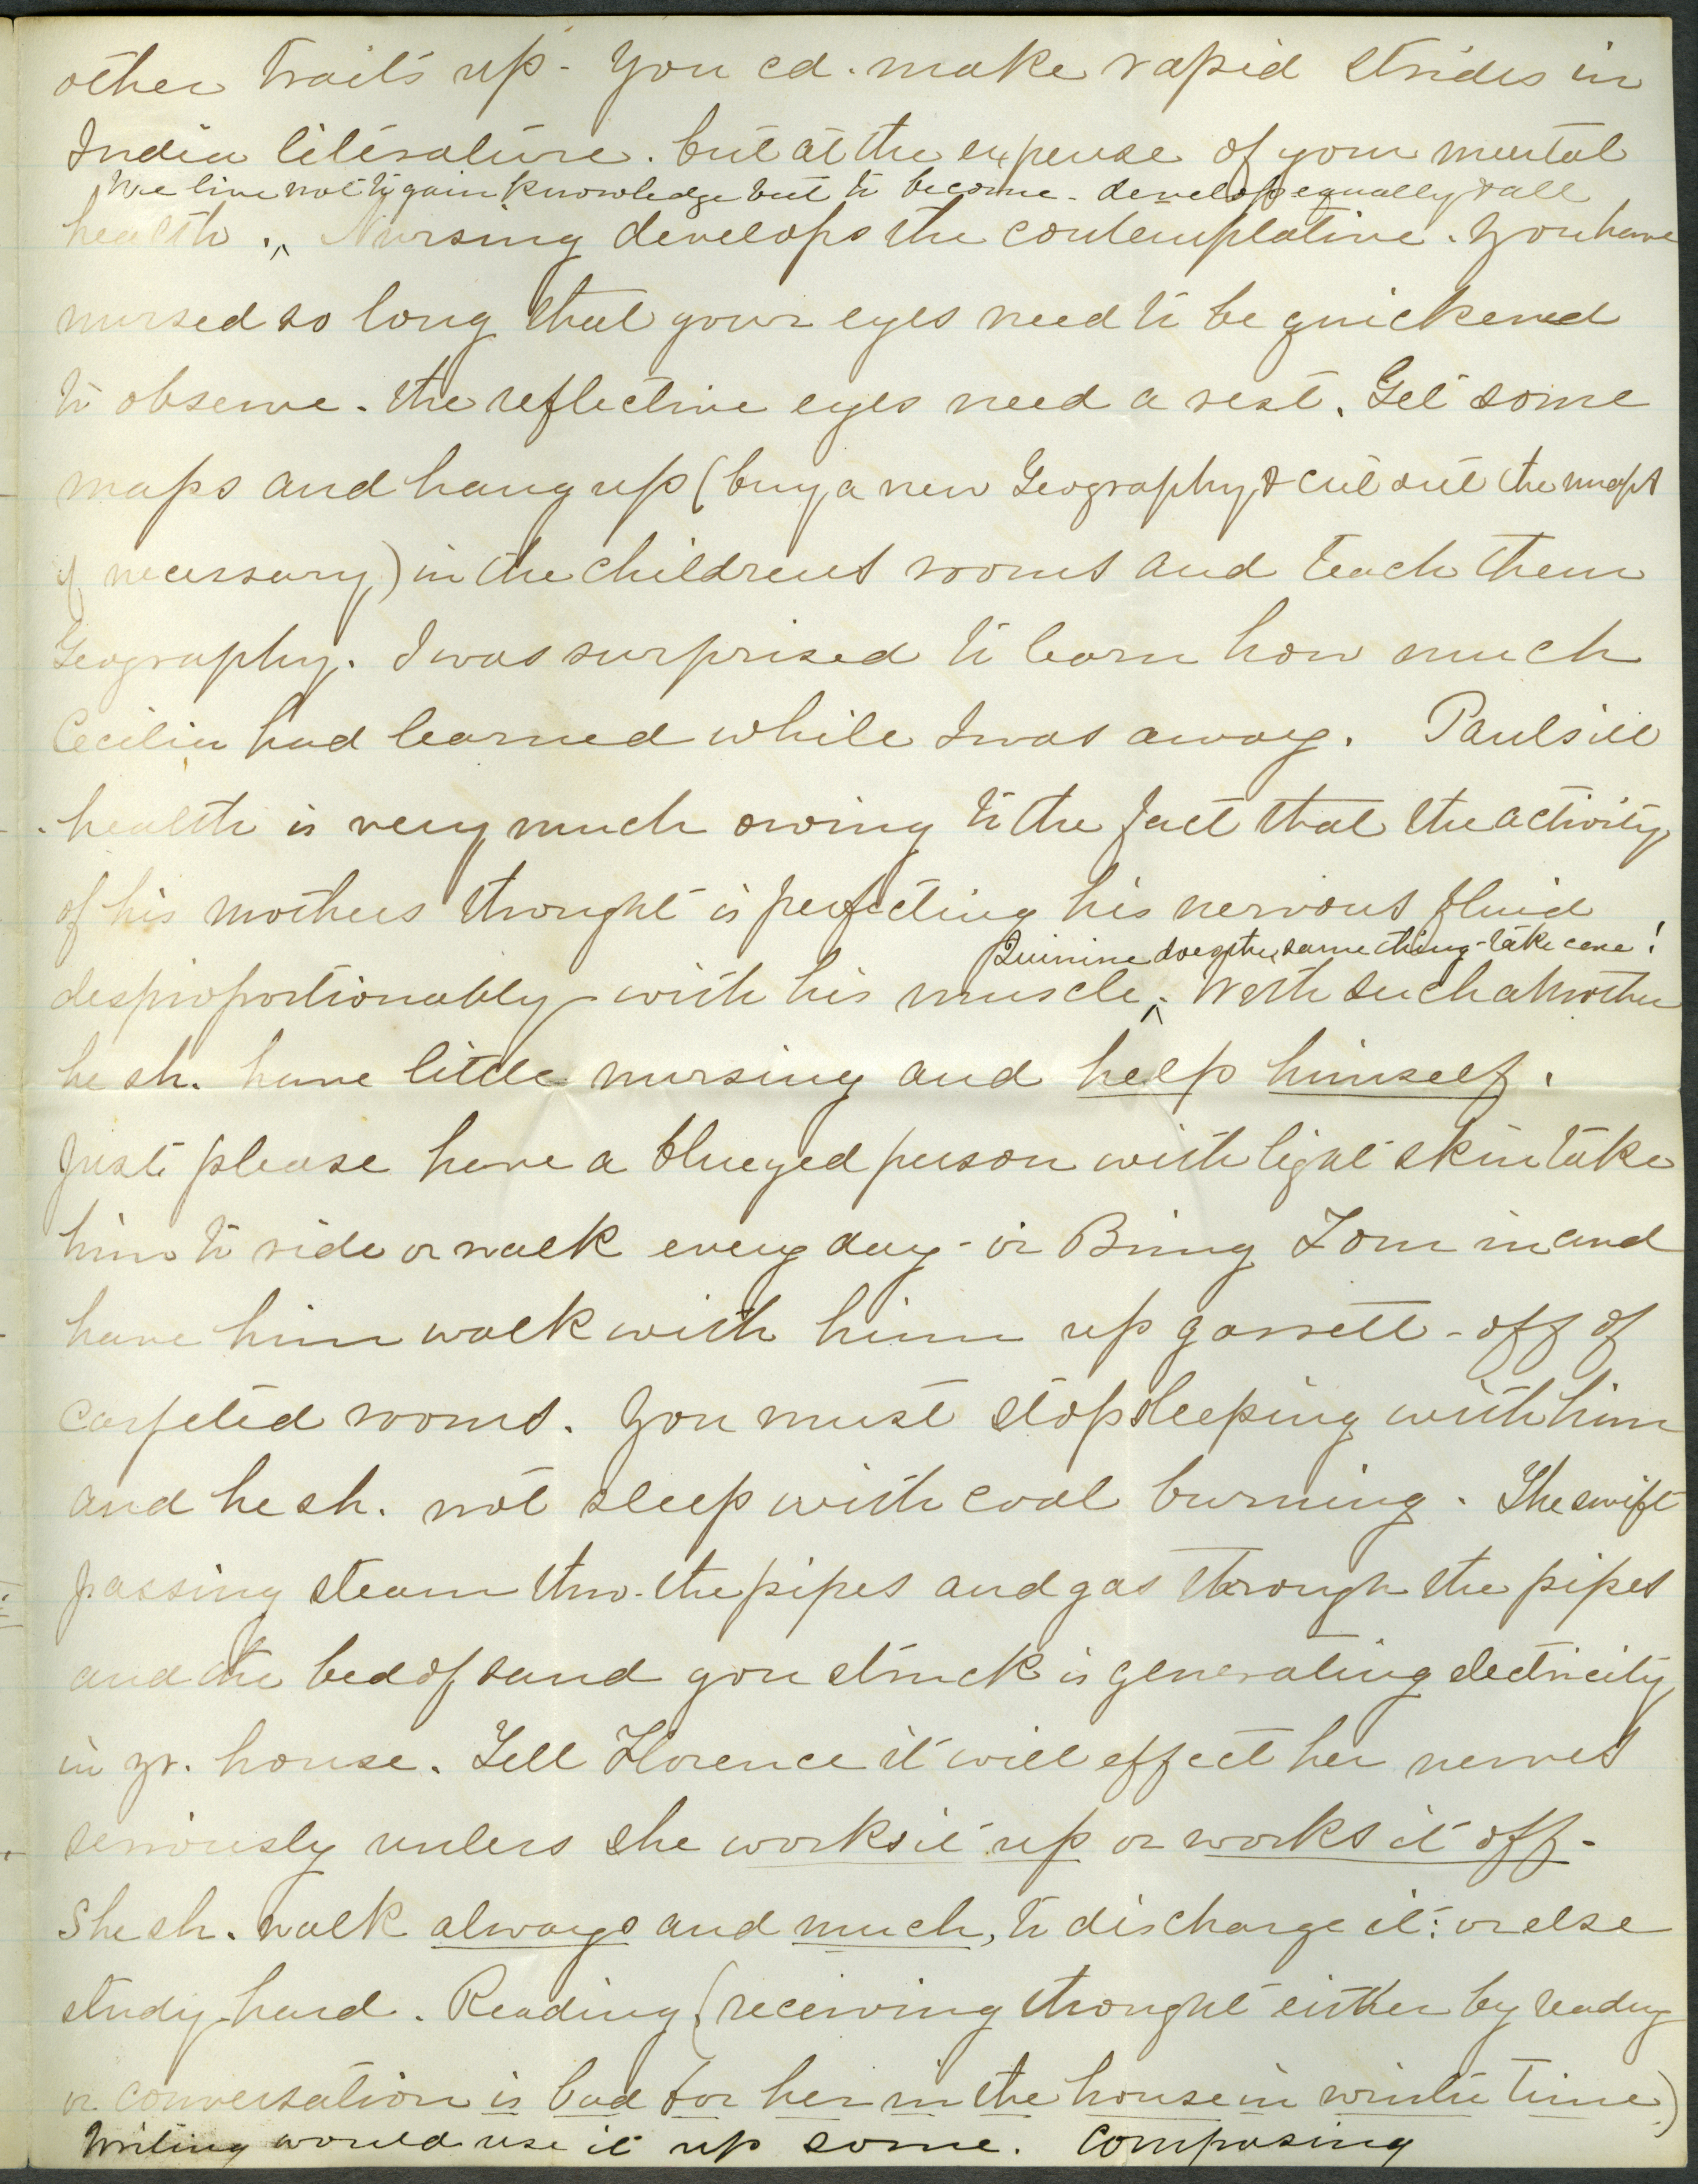 other traits up - You cd. make rapid strides in
India literature. but at the expense of your mental
We live not to gain knowledge but to become - develop equally & all
health. ^ Nursing develops the contemplative. You have
nursed so long that your eyes need to be quickened
to observe. the reflective eyes need a rest. Get some
maps and hang up (buy a new Geography & cut out the maps
if necessary) in the childrens rooms and teach them
Geography. I was surprised to learn how much
Cecilia had learned while I was away. Pauls ill
health is very much owing to the fact that the activity
of his mothers thought is perfecting his nervous fluid
Quinine does the same thing - take care!
desproportionably with his muscle ^. With such a Mother
he sh. have little nursing and help himself.
Just please have a blueyed person with light skin take
him to ride or walk every day - or Bring Tom in and
have him walk with him up garrett - off of
carpeted rooms. You must stop sleeping with him
and he sh. not sleep with coal burning. The swift
passing steam thro. the pipes and gas through the pipes
and the bed of sand you struck is generating electricity
in yr. house. Tell Florence it will effect her nerves
seriously unless she works it up or works it off -
She sh. walk always and much, to discharge it: or else
study hard. Reading (receiving thought either by readng
or conversation is bad for her in the house in winter time)
Writing would use it up some. Composing